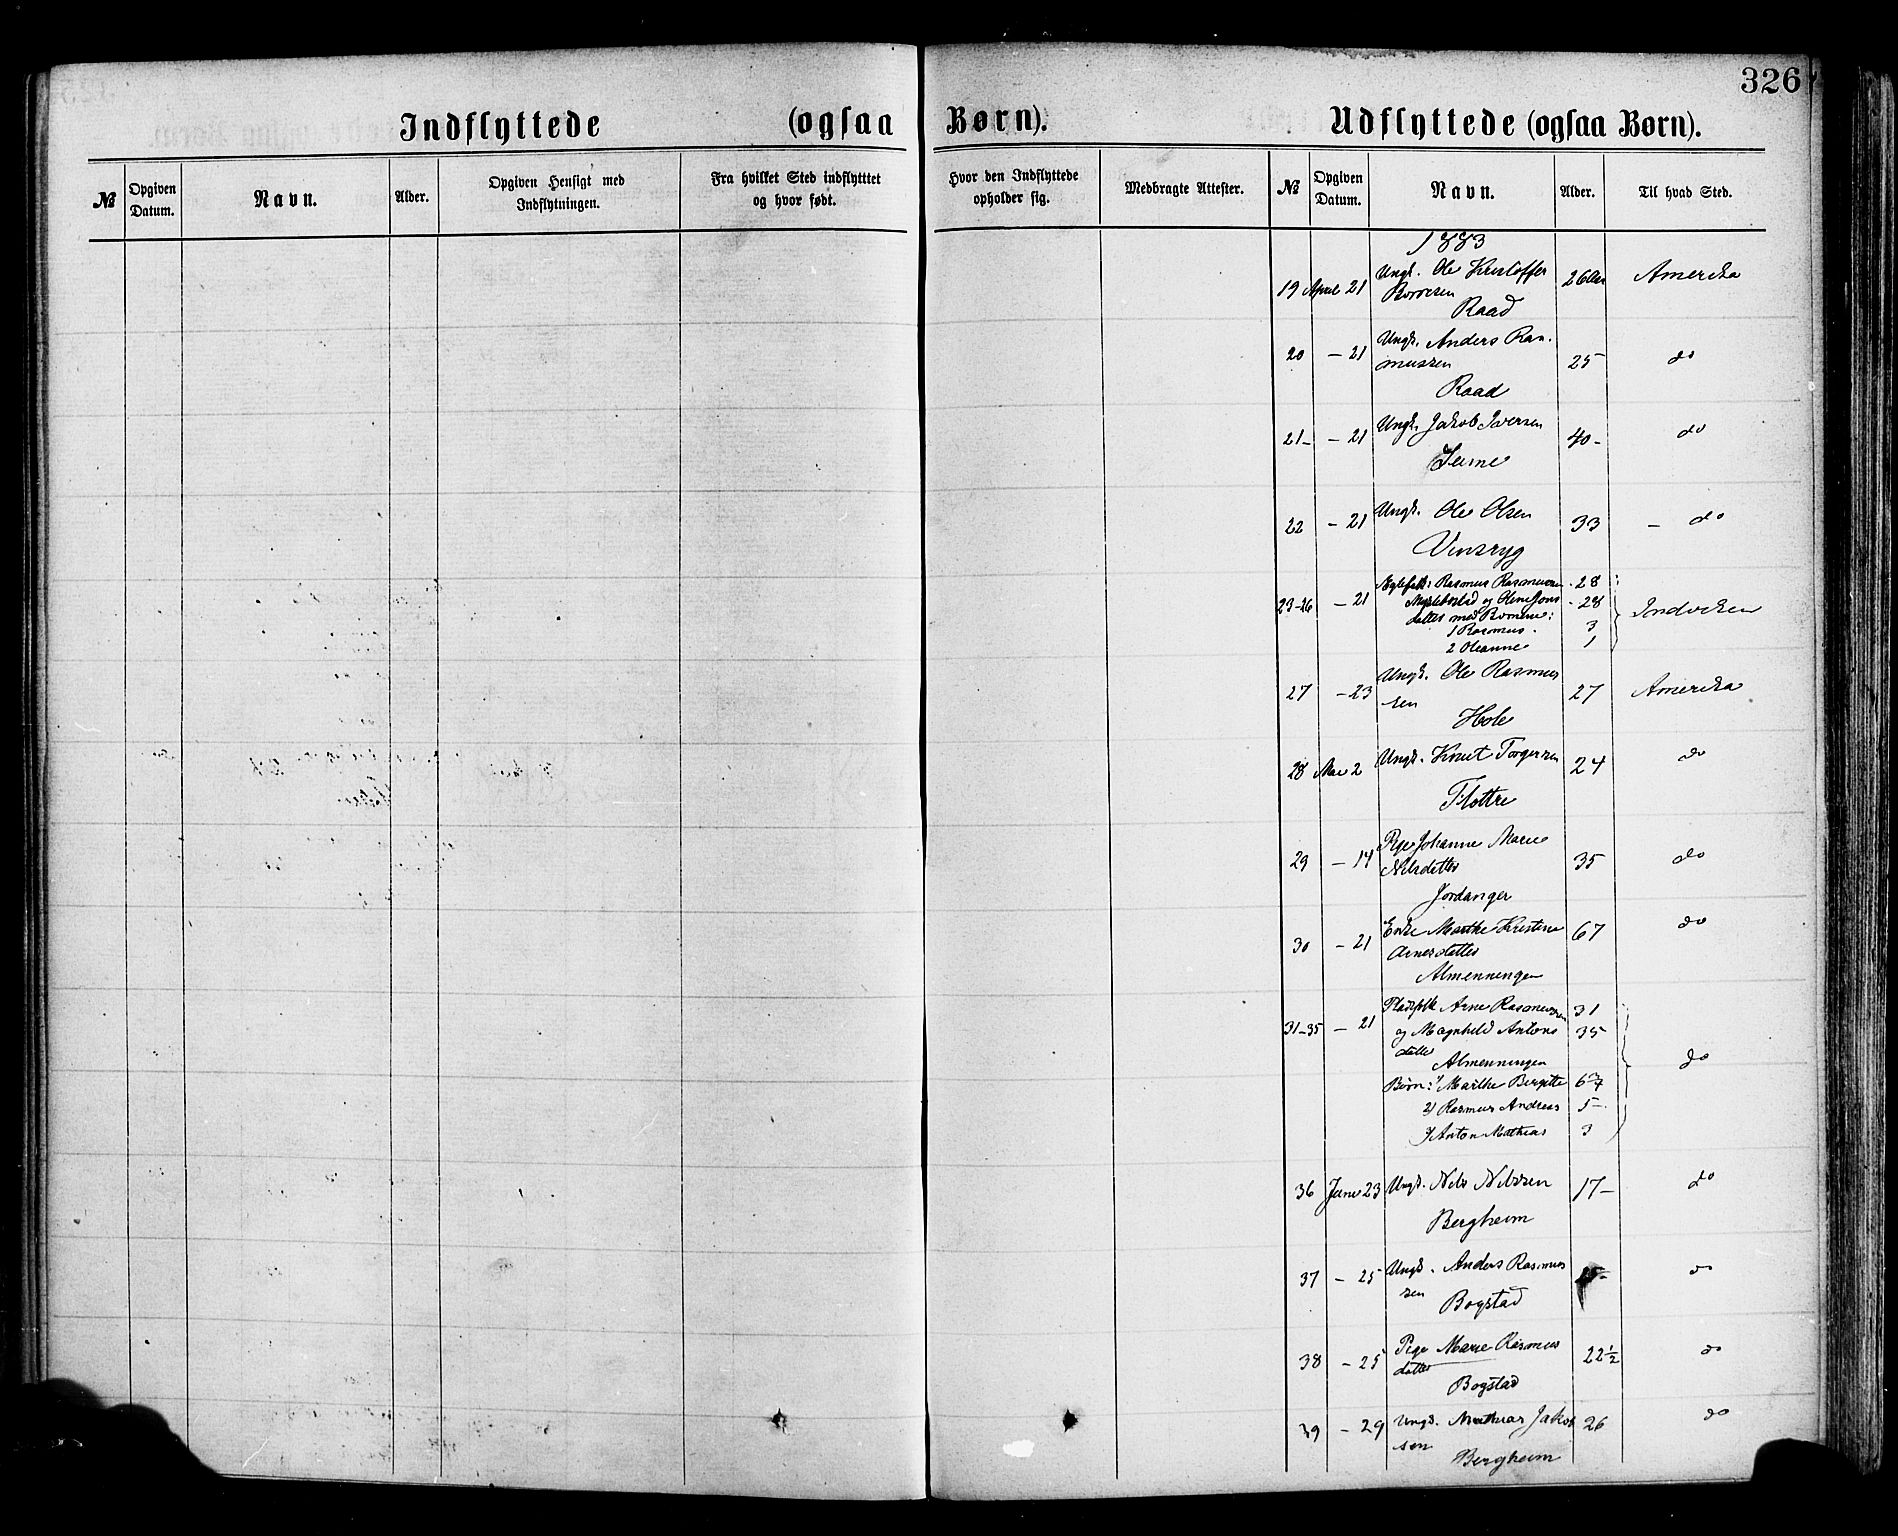 326
Indflyttede (ogsaa Børn).
Udflyttede (ogsaa Børn).
№ Opgiven Datum. Navn. Alder. Opgiven Hensigt med Indflytningen. Fra hvilket Sted indflytttet og hvor født. Hvor den Indflyttede opholder sig. Medbragte Attester. № Opgiven Datum. Navn. Alder. Til hvad Sted.
1883
19 April 21 Ungk. Ole Kristoffer 26 Aar Amerika
Raad
20 – 21 Ungk. Anders Ras-
mussen 25 do
Raad
21 – 21 Ungk. Jakob Iversen 40 – do
22 – 21 Ungk. Ole Olsen 33 – do
Vinsryg
23-26 – 21 Rasmus Rasmussen 28
Myklebostad og Oline Jons 28 Indviken
datter med Børnene:
1 Rasmus 3
2 Oleanne 1
27 – 23 Ungk. Ole Rasmus 27 Amerika
sen
Hole
28 Mai 2 Ungk. Knut Torgersen 24 do
Flottre
29 – 14 Pige Johanne Marie 35 do
Nilsdatter
Jordanger
30 – 21 Enke Marthe Kristine 67 do
Arnesdatter
Almenningen
31-35 – 21 Pladsfolk Arne Rasmussen 31
og Magnhild Antons 35
datter
Almenningen do
Børn: 1) Marthe Bergitte 6 3/4
2) Rasmus Andreas 5 –
3) Anton Mathias 3
36 Juni 23 Ungk. Nils Nilssen 17 – do
Bergheim
37 – 25 Ungk. Anders Rasmus do
sen
Bogstad
38 – 25 Pige Marie Rasmus 22 1/2 do
datter
Bogstad
39 – 29 Ungk. Mathias Jakob 26 do
sen
Bergheim